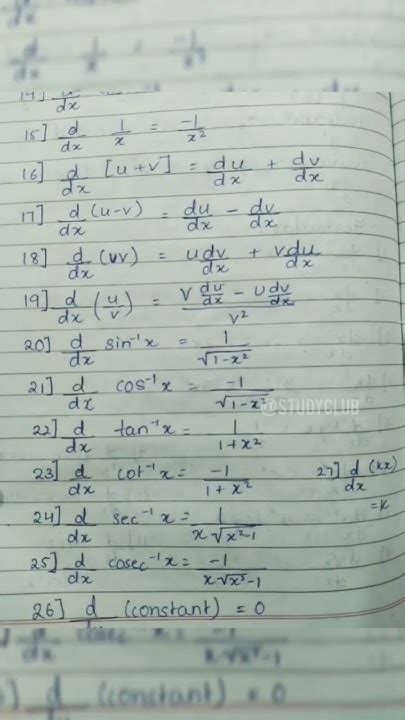 d/dx 1/x = -1/x²
14] d/dx
15] d/dx 1/x = -1/x²
16] d/dx [u+v] = du/dx + dv/dx
17] d/dx (u-v) = du/dx - dv/dx
18] d/dx (uv) = u dv/dx + v du/dx
19] d/dx (u/v) = (v du/dx - u dv/dx)/v²
20] d/dx sin⁻¹x = 1/√1-x²
21] d/dx cos⁻¹x = -1/√1-x²
@STUDYCLUB
22] d/dx tan⁻¹x = 1/1+x²
23] d/dx cot⁻¹x = -1/1+x²
27] d/dx (kx) = k
24] d/dx sec⁻¹x = 1/x√x²-1
25] d/dx cosec⁻¹x = -1/x√x²-1
26] d (constant) = 0
dx x√x²-1
d (constant) = 0